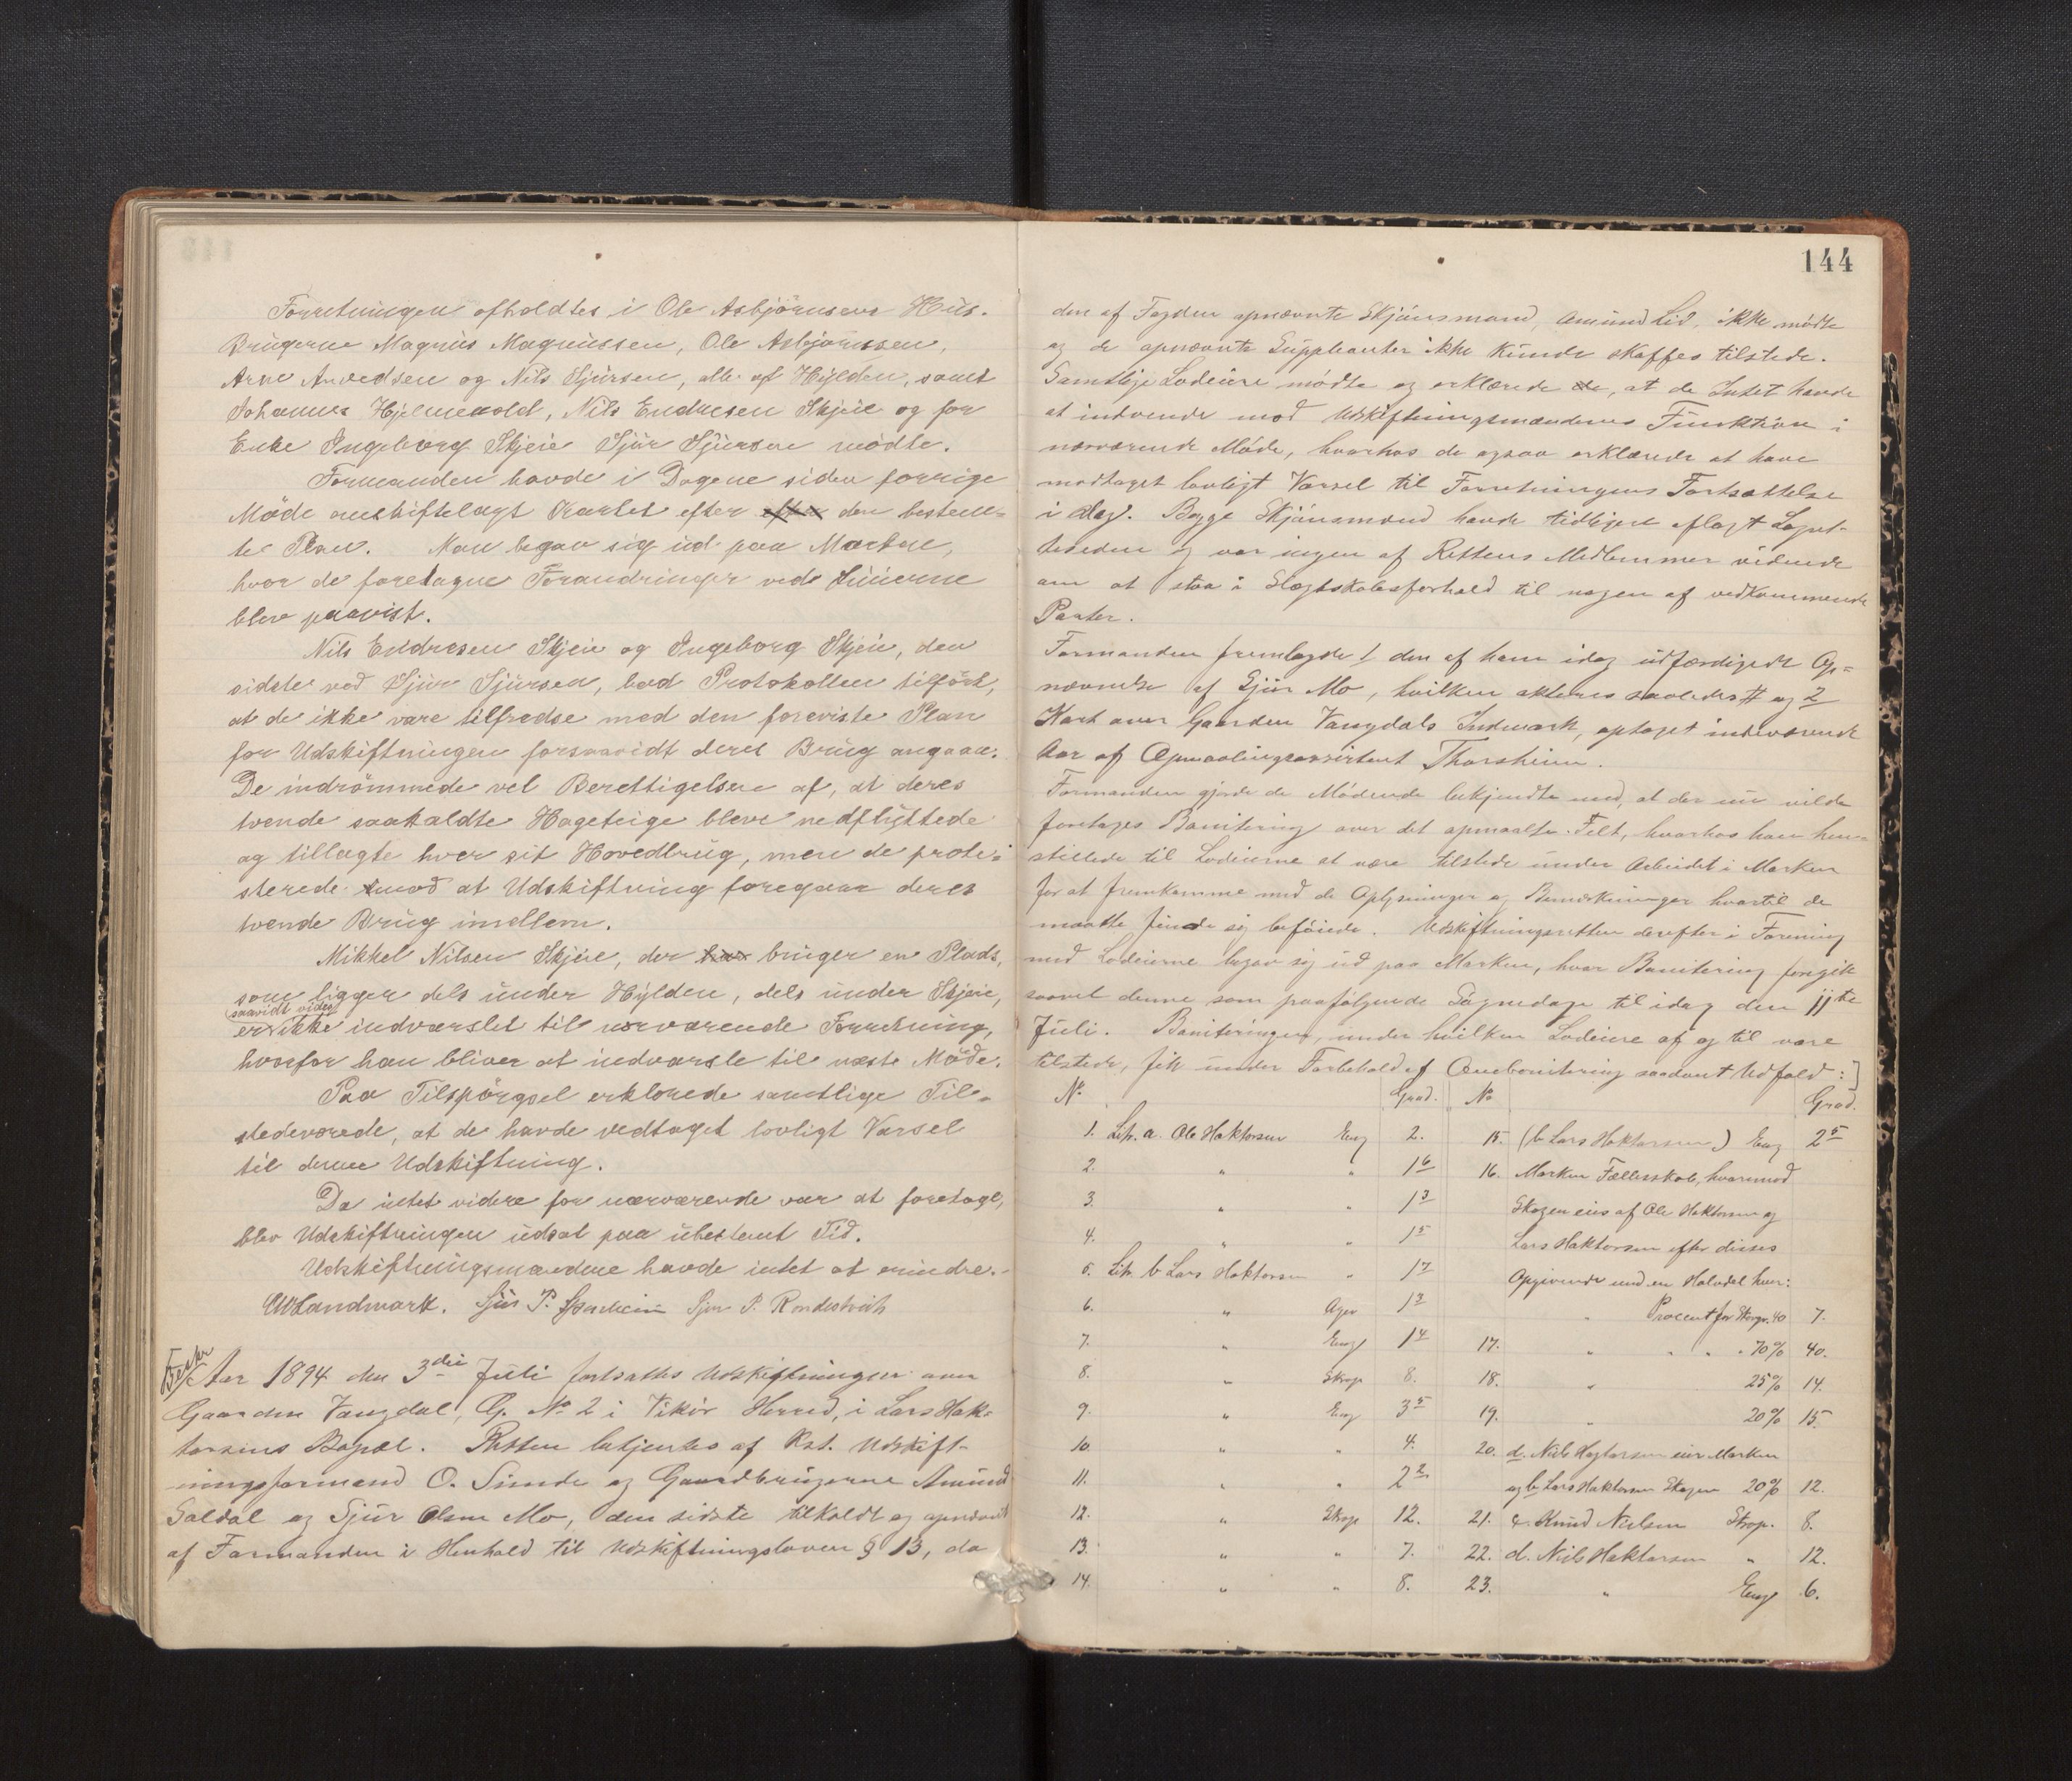 Forretningen afholdtes i Ole Asbjørnsens Hus.
Brugerne Magnus Magnussen, Ole Asbjørnsen,
Arne Arvedsen og Nils Sjursen, alle af Hylden, samt
Johannes Hjelmevold, Nils Endresen Skjeie og for
Enke Ingeborg Skjeie Sjur Sjursen mødte.
Formanden havde i Dagene siden forrige
Møde omskiftelagt Kartet efter efter den bestem-
te Plan. Man begav sig ud paa Marken,
hvor de foretagne Forandringer ved Linierne
blev paavist.
Nils Endresen Skjeie og Ingeborg Skjeie, den
sidste ved Sjur Sjursen, bad Protokollen tilført,
at de ikke vare tilfredse med den foreviste Plan
for Udskiftningen forsaavidt deres Brug angaar.
De indrømmede vel Berettigelsen af, at deres
tvende saakaldte Hageteige bleve nedflyttede
og tillagte hver sit Hovedbrug, men de prote-
sterede imod at Udskiftning foregaar deres
tvende Brug imellem.
Mikkel Nilsen Skjeie, der har bruger en Plads,
som ligger dels under Hylden, dels under Skjeie,
saavidt vides
er ikke indvarslet til nærværende Forretning,
hvorfor han bliver at indvarsle til næste Møde.
Paa Tilspørgsel erklærede samtlige Til-
stedeværede, at de havde vedtaget lovligt Varsel
til denne Udskiftning.
Da intet videre for nærværende var at foretage,
blev Udskiftningen udsat paa ubestemt Tid.
Udskiftningsmændene havde intet at erindre.
Landmark. Sjur P. Sponheim Sjur P. Rondestveit
Aar 1894 den 3die Juli fortsattes Udskiftningen over
Gaarden Vangdal, G. No 2 i Vikør Herred, i Lars Hak-
torsens Bopæl. Retten betjentes af Kst. Udskift-
ningsformand O. Sunde og Gaardbrugerne Amund
Saldal og Sjur Olsen Mo, den sidste tilkaldt og opnævnt
af Formanden i Henhold til Udskiftningsloven § 13, da
144
den af Fogden opnævnte Skjønsmand, Amund Lid, ikke mødte
og de opnævnte Suppleanter ikke kunde skaffes tilstede.
Samtlige Lodeiere mødte og erklærede de, at de Intet havde
at indvende mod Udskiftningsmændenes Funktion i
nærværende Møde, hvorhos de ogsaa erklærede at have
modtaget lovligt Varsel til Forretningens Fortsættelse
i dag. Begge Skjønsmænd havde tidligere aflagt Laget-
teseden og var ingen af Rettens Medlemmer vidende
om at staa i Slægtskabsforhold til nogen af vedkommende
Parter.
Formanden fremlagde 1 den af ham idag udfærdigede Op-
nævnelse af Sjur Mo, hvilken akteres saaledes # og 2
Kart over Gaarden Vangdals Indmark, optaget indeværende
Aar af Opmaalingsassistent Thorsheim.
Formanden gjorde de Mødende bekjendte med, at der nu vilde
foretages Bonitering over det opmaalte Felt, hvorhos han hen-
stillede til Lodeierne at være tilstede under Arbeidet i Marken
for at fremkomme med de Oplysninger og Bemærkninger hvortil de
maatte finde sig beføiede. Udskiftningsretten derefter i Forening
med Lodeierne begav sig ud paa Marken, hvor Bonitering foregik
saavel denne som paafølgende Søgnedage til idag den 11te
Juli. Boniteringen, under hvilken Lodeiere af og til vare
tilstede, fik under Forbehold af Ombonitering saadant Udfald:
No Grad. No Grad.
1. Litr. a. Ole Haktorsen Eng 2. 15. (b Lars Haktorsen) Eng 2 5
2. " " 1 6 16. Marken Fællesskab, hvorimod
3. " " 1 3 Skogen eies af Ole Haktorsen og
4. " " 1 5 Lars Haktorsen efter disses
5. Litr. b Lars Haktorsen " 1 7 Opgivende med en Halvdel hver:
6. " Ager 1 3 " Procent for Skog. 40 7.
7. " Eng 1 4 17. " " " 70% 40.
8. " Skog 8. 18. " 25% 14.
9. " Eng 3 5 19. " 20% 15.
10. " " 4. 20. d. Nils Hagtorsen eier Marken
11. " " 2 2 og b Lars Haktorsen Skogen 20% 12.
12. " Skog 12. 21. c. Knud Nielsen Skog. 8.
13. " " 7. 22. d. Niels Haktorsen " 12.
14. " " 8. 23. " Eng 6.